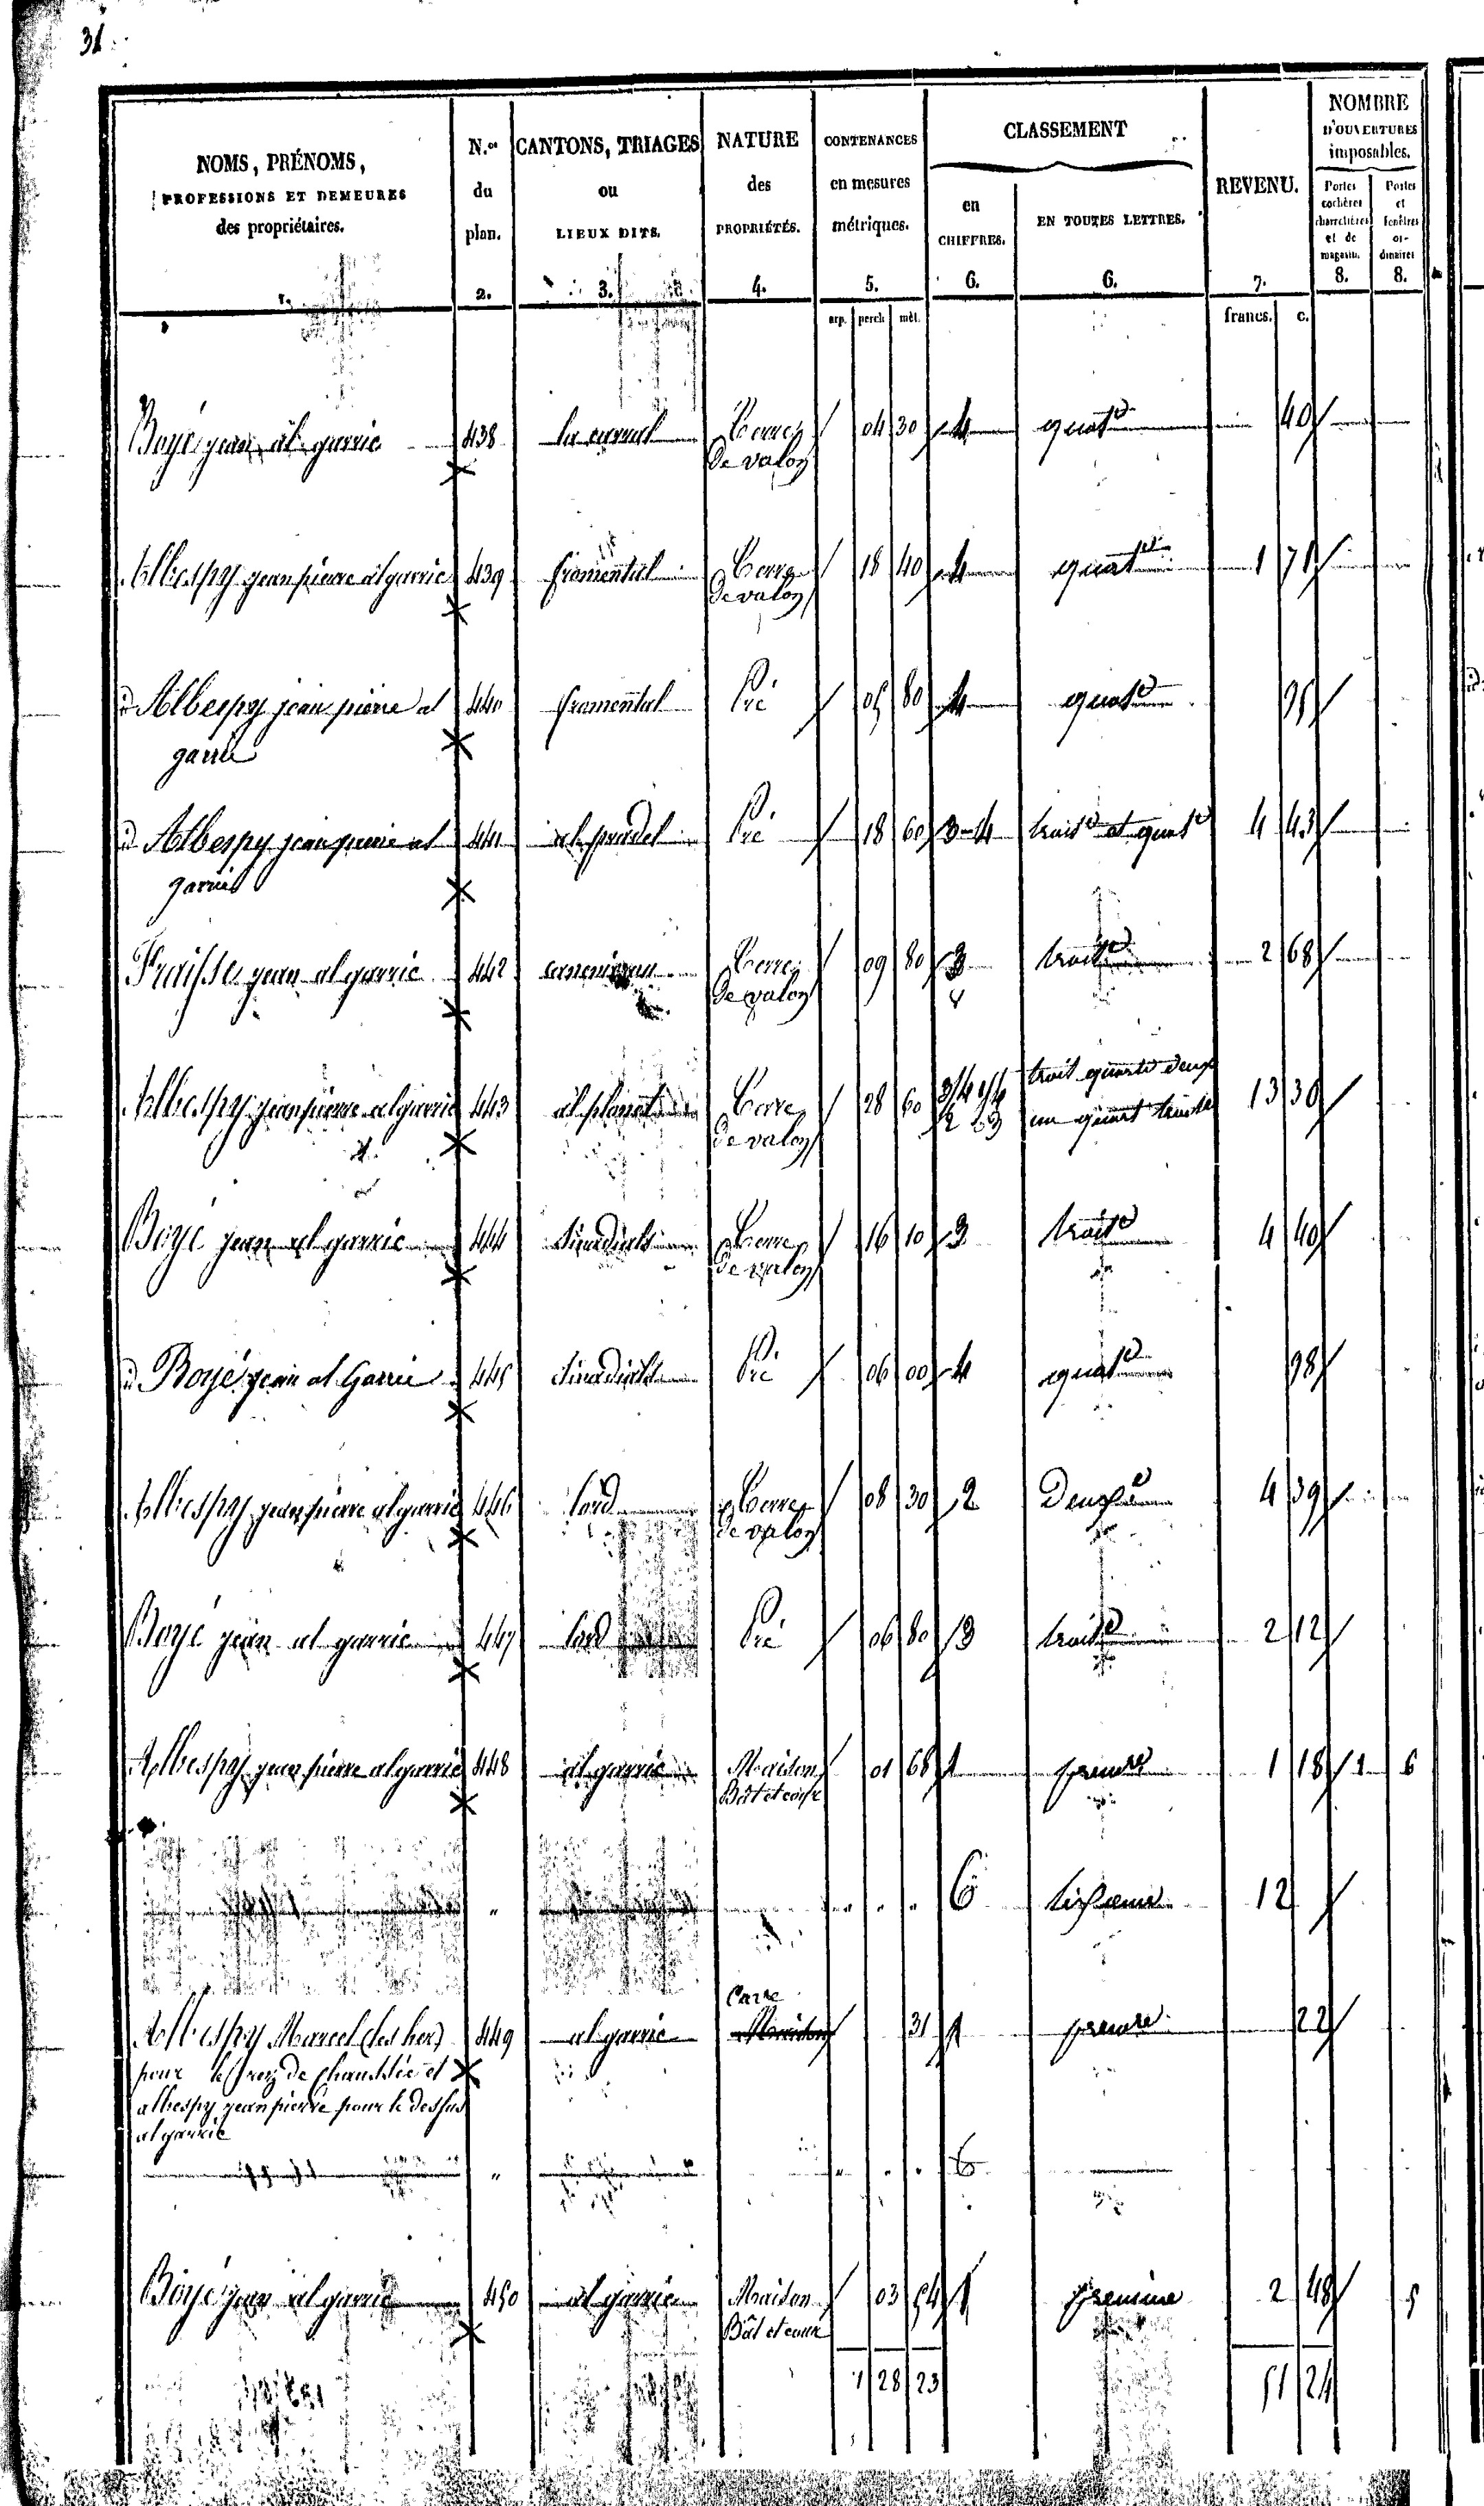 31
NOMS, PRÉNOMS,
PROFESSIONS ET DEMEURES
des propriétaires.
N.os
du
plan.
2.
CANTONS, TRIAGES
ou
LIEUX DITS.
3.
NATURE
des
PROPRIÉTÉS.
4.
CONTENANCES
en mesures
métriques.
5.
CLASSEMENT
en
CHIFFRES.
6.
EN TOUTES LETTRES.
6.
REVENU.
7.
NOMBRE
D'OUVERTURES
imposables.
Portes
cochères
charretières
et de
magasin.
8.
Portes
et
fenêtres
or-
dinaires
8.
arp. perch. mèt. francs. c.
Boyé jean al garric 438 Terre 04 30 4 quate 40
de valoy
Albespy jean pierre al garric 439 fromental Terre 18 40 4 quate 1 71
de valoy
id Albespy jean pierre al 440 fromental Pré 05 80 4 quate 95
garric
id Albespy jean pierre al 441 al pradel Pré 18 60 3-4 troise et quate 4 43
garric
Fraisse jean al garric 442 Terre 09 80 3 troise 2 68
de valoy
Albespy jean pierre al garric 443 al planet Terre 28 60 3/4 1/4 trois quarts deuxe 13 30
de valoy 2 3 un quart troise
Boyé jean al garric 444 Terre 16 10 3 troise 4 40
de valoy
id Boyé jean al Garric 445 Pré 06 00 4 quate 98
Albespy jean pierre al garric 446 lord Terre 08 30 2 Deuxe 4 39
de valoy
Boyé jean al garric 447 lord Pré 06 80 3 troise 2 12
Albespy jean pierre al garric 448 al garric Maison 01 68 1 premre 1 18 1 6
Bât et cour
" 6 sixieme 12
Cave
Albespy Marcel (les her) 449 al garric Maison 31 1 premre 22
pour le rez de chaussée et
albespy jean pierre pour le dessus
al garric
" 6
Boyé jean al garric 450 al garric Maison 03 54 1 premiere 2 48 5
Bât et cour
1 28 23 51 24